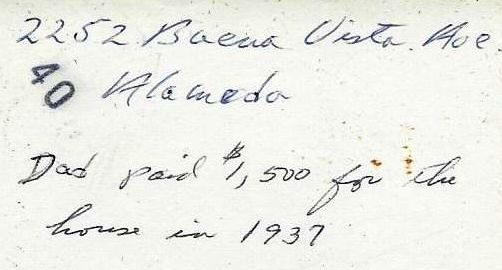 2252 Buena Vista Ave.
40
Alameda
Dad paid $1,500 for the
house in 1937